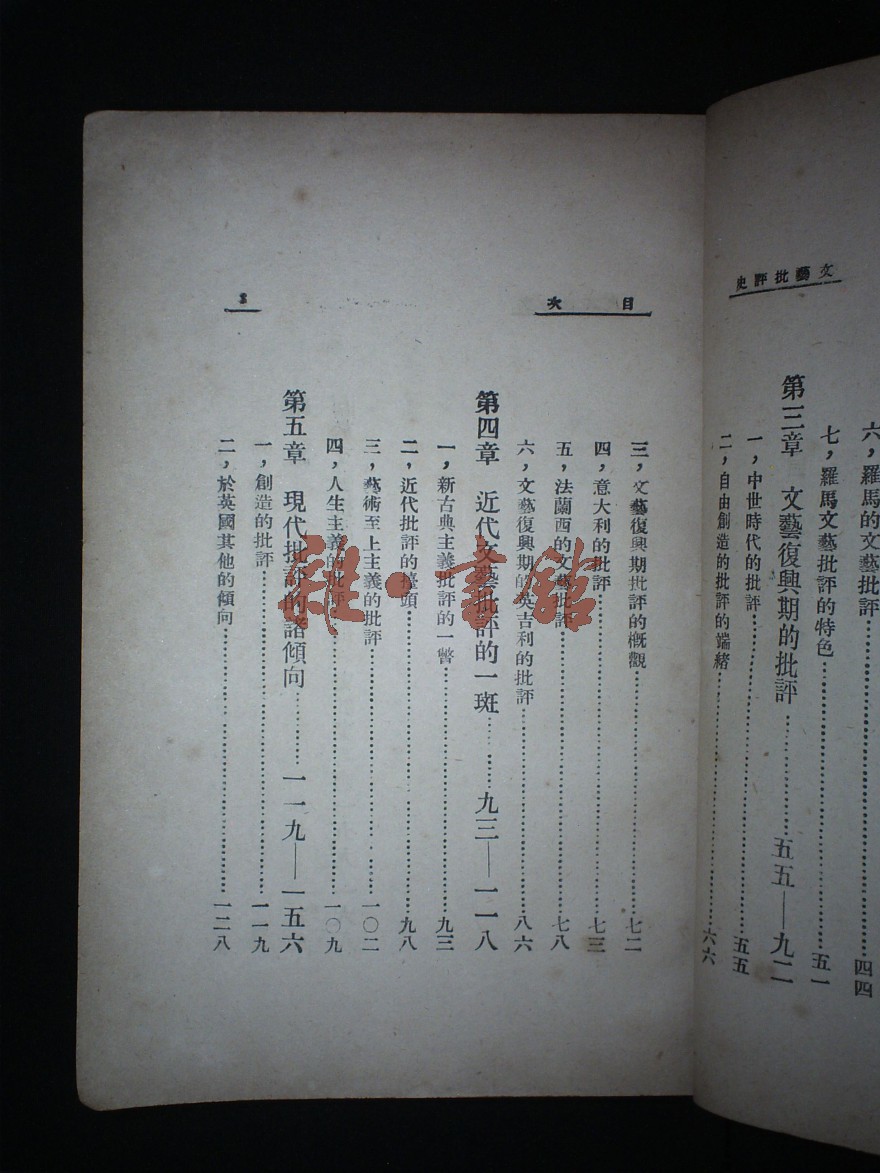 文藝批評史
六，羅馬的文藝批評……四四
七，羅馬文藝批評的特色……五一
第三章　文藝復興期的批評……五五—九二
一，中世時代的批評……五五
二，自由創造的批評的端緒……六六
目次
三，文藝復興期批評的概觀……七二
四，意大利的批評……七三
五，法蘭西的文藝批評……七八
六，文藝復興期的英吉利的批評……八六
第四章　近代文藝批評的一斑……九三—一一八
一，新古典主義批評的一瞥……九三
二，近代批評的擡頭……九八
三，藝術至上主義的批評……一〇二
四，人生主義的批評……一〇九
第五章　現代批評的諸傾向……一一九—一五六
一，創造的批評……一一九
二，於英國其他的傾向……一二八
雜·書館